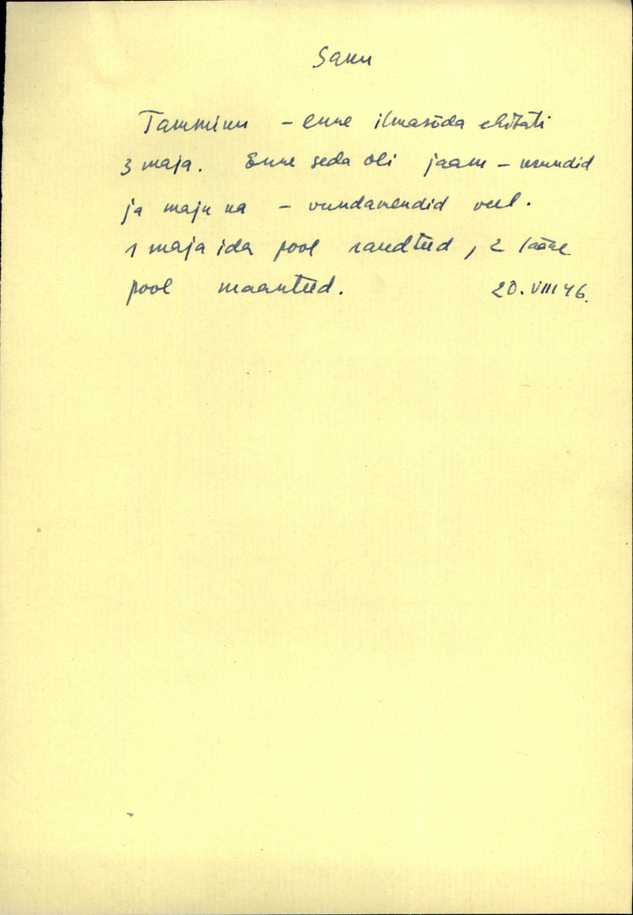 Sanu
Tamminu – enne ilmasõda ehitati
3 maja. Enne seda oli jaam –
ja maju ka – vundamendid veel.
1 maja ida pool raudteed, 2 lääne
pool maanteed. 20. VIII 46.